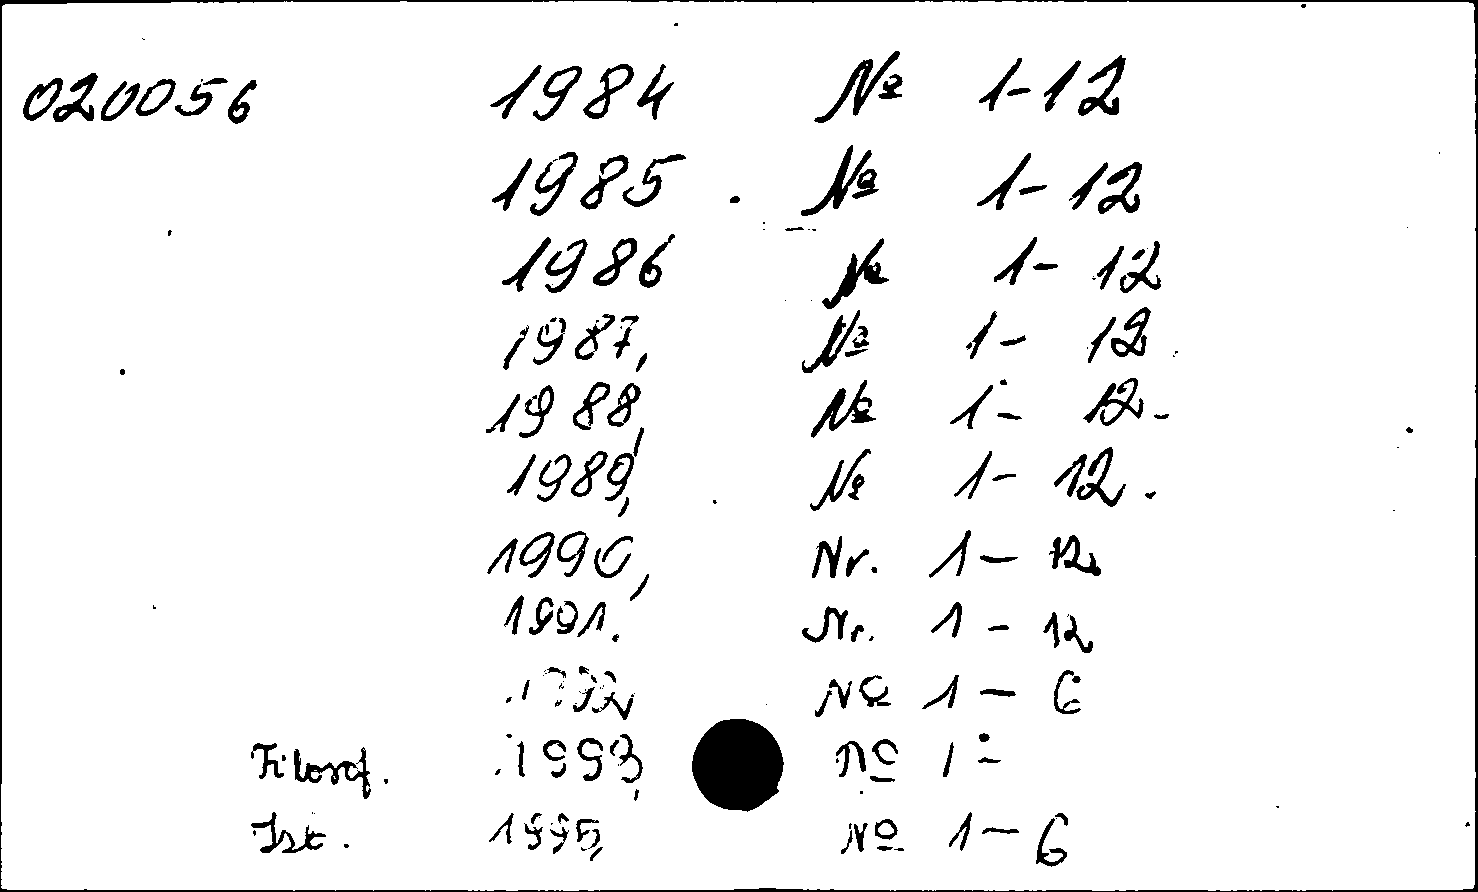 020056 1984 № 1-12
1985 № 1-12
1986 № 1-12
1987, № 1-12
1988, № 1-12-
1989, № 1-12.
1990, Nr. 1-12.
1991. Nr. 1-12
1992 № 1-6
Filosof. 1993, № 1-
Ist. 1995, № 1-6